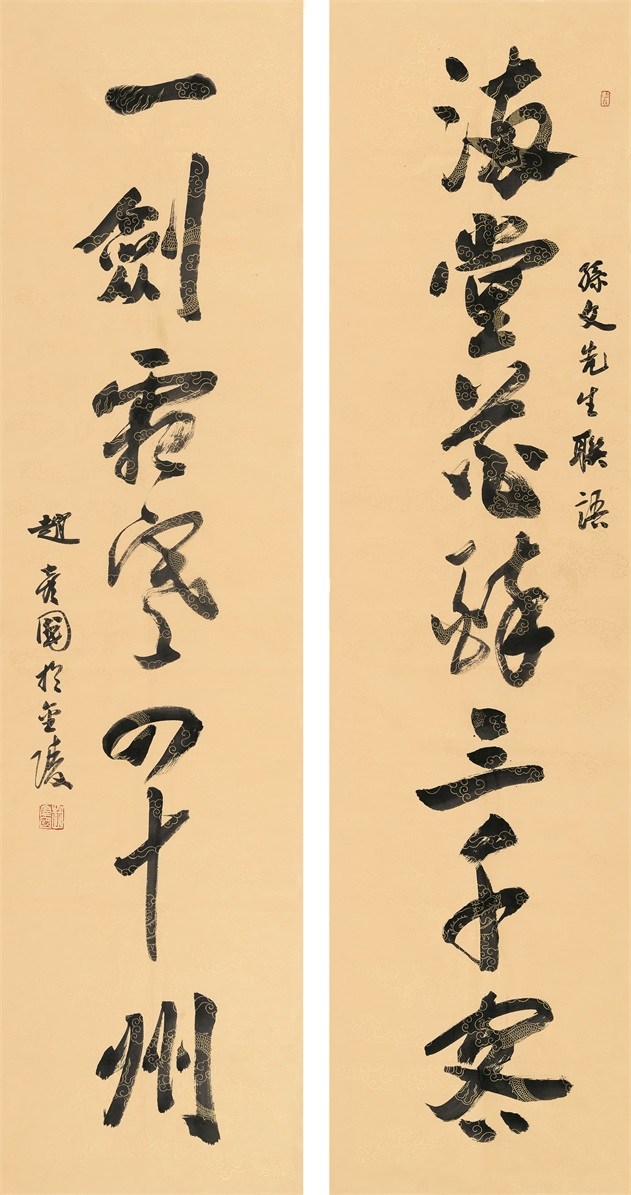 孫文先生聯語
滿堂花醉三千客
一劍霜寒四十州
趙彥國於金陵